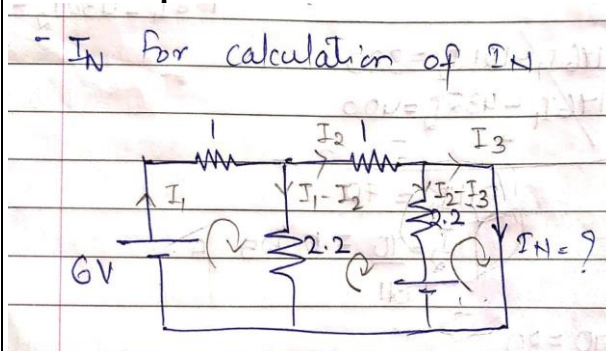 - IN for calculation of IN
1 I2 1 I3
I1 I1-I2 I2-I3
2.2
6V 2.2 IN = ?